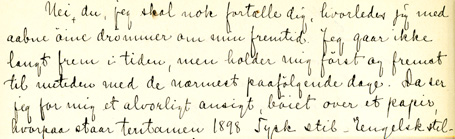 Nei, du, jeg skal nok fortælle dig, hvorledes jeg med
aabne øine drømmer om min fremtid. Jeg gaar ikke
langt frem i tiden, men holder mig først og fremst
til nutiden med de nærmest paafølgende dage. Da ser
jeg for mig et alvorligt ansigt, bøiet over et papir,
hvorpaa staar tentamen 1898 Tysk stil. Engelsk stil